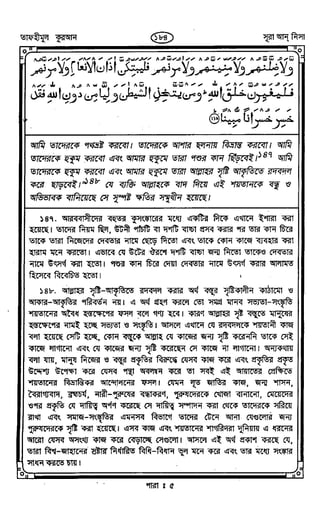 তাফহীমুল কুরআন
১৮৪
সূরা আন্ নিসা
وَلَاُضِلَّنَّهُمْ وَلَاُمَنِّيَنَّهُمْ وَلَاٰمُرَنَّهُمْ فَلَيُبَتِّكُنَّ اٰذَانَ الْاَنْعَامِ وَلَاٰمُرَنَّهُمْ
فَلَيُغَيِّرُنَّ خَلْقَ اللّٰهِ ؕ وَمَنْ يَّتَّخِذِ الشَّيْطٰنَ وَلِيًّا مِّنْ دُوْنِ اللّٰهِ فَقَدْ
خَسِرَ خُسْرَانًا مُّبِيْنًا ﴿١١٩﴾
আমি তাদেরকে পথভ্রষ্ট করবো। তাদেরকে আশার ছলনায় বিভ্রান্ত করবো। আমি
তাদেরকে হুকুম করবো এবং আমার হুকুমে তারা পশুর কান ছিঁড়বেই।১৪৭ আমি
তাদেরকে হুকুম করবো এবং আমার হুকুমে তারা আল্লাহর সৃষ্টি আকৃতিতে রদবদল
করে ছাড়বেই।১৪৮ যে ব্যক্তি আল্লাহকে বাদ দিয়ে এই শয়তানকে বন্ধু ও
অভিভাবক বানিয়েছে সে সুস্পষ্ট ক্ষতির সম্মুখীন হয়েছে।
১৪৭. আরববাসীদের বহুতর কুসংস্কারের মধ্যে একটির দিকে এখানে ইশারা করা
হয়েছে। তাদের নিয়ম ছিল, উটনী পাঁচটি বা দশটি বাচ্চা প্রসব করার পর তার কান চিরে
তাকে তারা নিজেদের দেবতার নামে ছেড়ে দিতো এবং তাকে কোন কাজে ব্যবহার করা
হারাম মনে করতো। এভাবে যে উটের ঔরসে দশটি বাচ্চা জন্ম নিতো তাকেও দেবতার
নামে উৎসর্গ করা হতো। পশুর কান চিরে দেয়া দেবতার নামে উৎসর্গ করার আলামত
হিসেবে বিবেচিত হতো।
১৪৮. আল্লাহর সৃষ্টি-আকৃতিতে রদবদল করার অর্থ বস্তুর সৃষ্টিকালীন কাঠামো ও
আকার-আকৃতির পরিবর্তন নয়। এ অর্থ গ্রহণ করলে তো সমগ্র মানব সভ্যতা-সংস্কৃতি
শয়তানের অবৈধ হস্তক্ষেপের ফসল বলে গণ্য হবে। কারণ আল্লাহর সৃষ্ট বস্তুতে মানুষের
হস্তক্ষেপের নামই হচ্ছে সভ্যতা ও সংস্কৃতি। আসলে এখানে যে রদবদলকে শয়তানী কাজ
বলা হয়েছে সেটি হচ্ছে, কোন বস্তুকে আল্লাহ যে কাজের জন্য সৃষ্টি করেননি তাকে সেই
কাজে লাগানো এবং যে কাজের জন্য সৃষ্টি করেছেন সে কাজে না লাগানো। অন্যকথায়
বলা যায়, মানুষ নিজের ও বস্তুর প্রকৃতির বিরুদ্ধে যেসব কাজ করে এবং প্রকৃতির প্রকৃত
উদ্দেশ্য উপেক্ষা করে যেসব পন্থা অবলম্বন করে তা সবই এই আয়াতের প্রেক্ষিতে
শয়তানের বিভ্রান্তিকর আন্দোলনের ফসল। যেমন লূত জাতির কাজ, জন্ম শাসন,
বৈরাগ্যবাদ, ব্রহ্মচর্য, নারী-পুরুষের বন্ধ্যাকরণ, পুরুষদেরকে খোজা বানানো, মেয়েদের
ওপর প্রকৃতি যে দায়িত্ব অর্পণ করেছে সে দায়িত্ব সম্পাদন করা থেকে তাদেরকে সরিয়ে
রাখা এবং সমাজ-সংস্কৃতির এমনসব বিভাগে তাদের টেনে আনা যেগুলোর জন্য
পুরুষদেরকে সৃষ্টি করা হয়েছে। এসব কাজ এবং শয়তানের শাগরিদরা দুনিয়ায় এ ধরনের
আরো যেসব অসংখ্য কাজ করে বেড়াচ্ছে সেগুলো। আসলে এই অর্থ প্রকাশ করছে যে,
তারা বিশ্ব-জাহানের স্রষ্টার নির্ধারিত বিধি-বিধান ভুল মনে করে এবং তার মধ্যে সংস্কার
সাধন করতে চায়।
পারা ঃ ৫